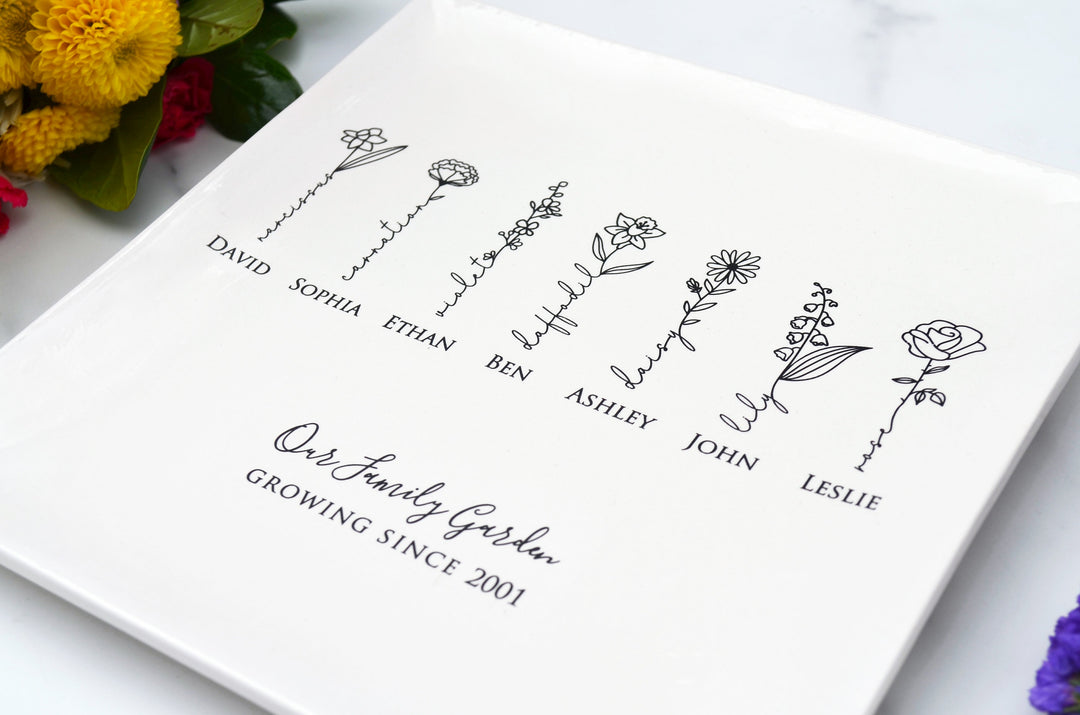 narcissus carnation violets daffodil daisy lily rose
DAVID SOPHIA ETHAN BEN ASHLEY JOHN LESLIE
Our Family Garden
GROWING SINCE 2001